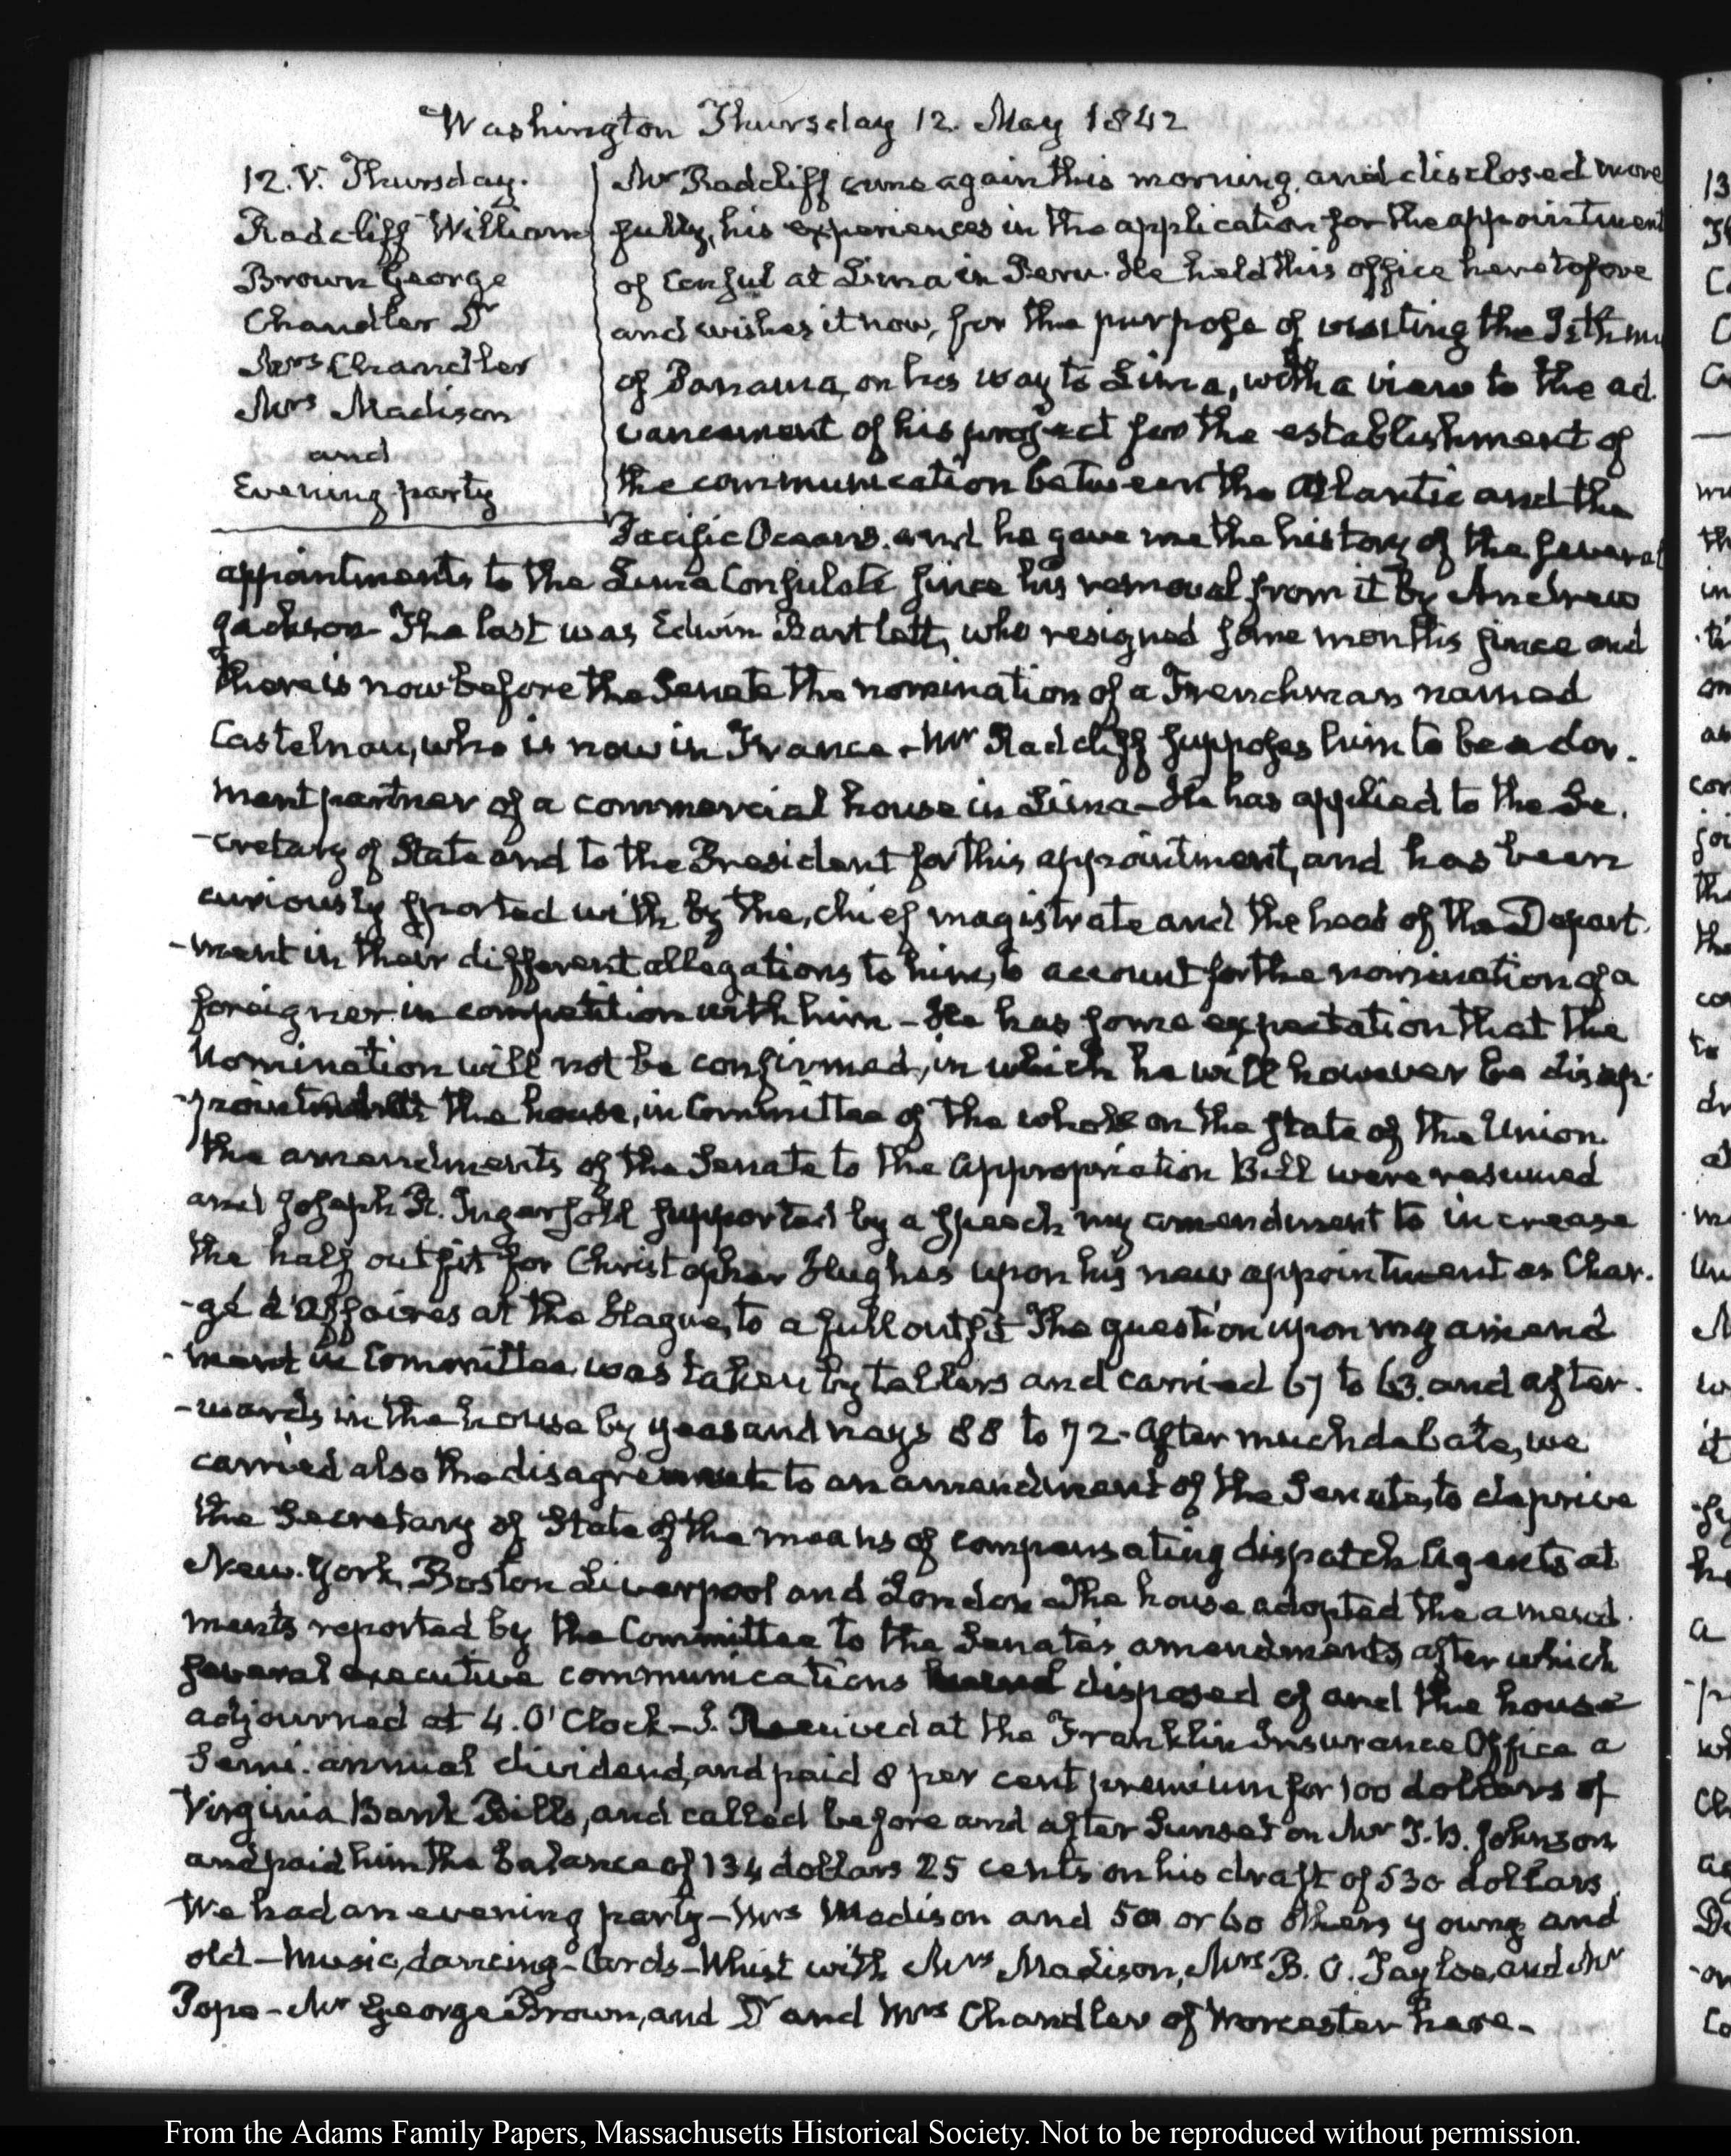 Washington Thursday 12. May 1842
12. V. Thursday.
Radcliff William
Brown George
Chandler Dr
Mrs Chandler
Mrs Madison
and
Evening party
Mr Radcliff came again this morning, and disclosed more
fully, his experiences in the application for the appointment
of Consul at Lima in Peru. He held this office heretofore
and wishes it now, for the purpose of visiting the Isthmu
of Panama, on his way to Lima, with a view to the ad
vancement of his project for the establishment of
the communication between the Atlantic and the
Pacific Oceans. and he gave me the history of the several
appointments to the Lima Consulate since his removal from it by Andrew
Jackson. The last was Edwin Bartlett, who resigned some months since and
there is now before the Senate the nomination of a Frenchman named
Castelnau, who is now in France. Mr Radcliff supposes him to be a dor.
mant partner of a commercial house in Lima – He has applied to the Se.
-cretary of State and to the President for this appointment, and has been
curiously sported with by the, chief magistrate and the head of the Depart.
-ment in their different allegations to him, to account for the nomination of a
foreigner in competition with him – He has some expectation that the
nomination will not be confirmed, in which he will however be disap.
the house, in Committee of the whole on the state of the Union.
the amendments of the Senate to the appropriation Bill were resumed
and Joseph R. Ingersoll supported by a speech my amendment to increase
the half outfit for Christopher Hughes upon his new appointment as Char.
-gé d'Affaires at the Hague, to a full outfit The question upon my amend
-ment in Committee was taken by tellers and carried 67 to 63. and after.
-wards in the house by yeas and nays 88 to 72. After much debate, we
carried also the disagreement to an amendment of the Senate, to deprive
the Secretary of State of the means of compensating dispatch Agents at
New. York, Boston Liverpool and London – The house adopted the amend.
ments reported by the Committee to the Senate's amendments, after which
several executive communications disposed of and the house
adjourned at 4. O'Clock – I. Received at the Franklin Insurance Office a
Semi. annual dividend, and paid 8 per cent premium for 100 dollars of
Virginia Bank Bills, and called before and after Sunset on Mr T. B. Johnson
and paid him the balance of 134 dollars 25 cents on his draft of 530 dollars.
We had an evening party – Mrs Madison and 50 or 60 others young and
old – Music, dancing – Cards – Whist with Mrs Madison, Mrs B. O. Tayloe, and Mr
Pope – Mr George Brown, and Dr and Mrs Chandler of Worcester here –
From the Adams Family Papers, Massachusetts Historical Society. Not to be reproduced without permission.